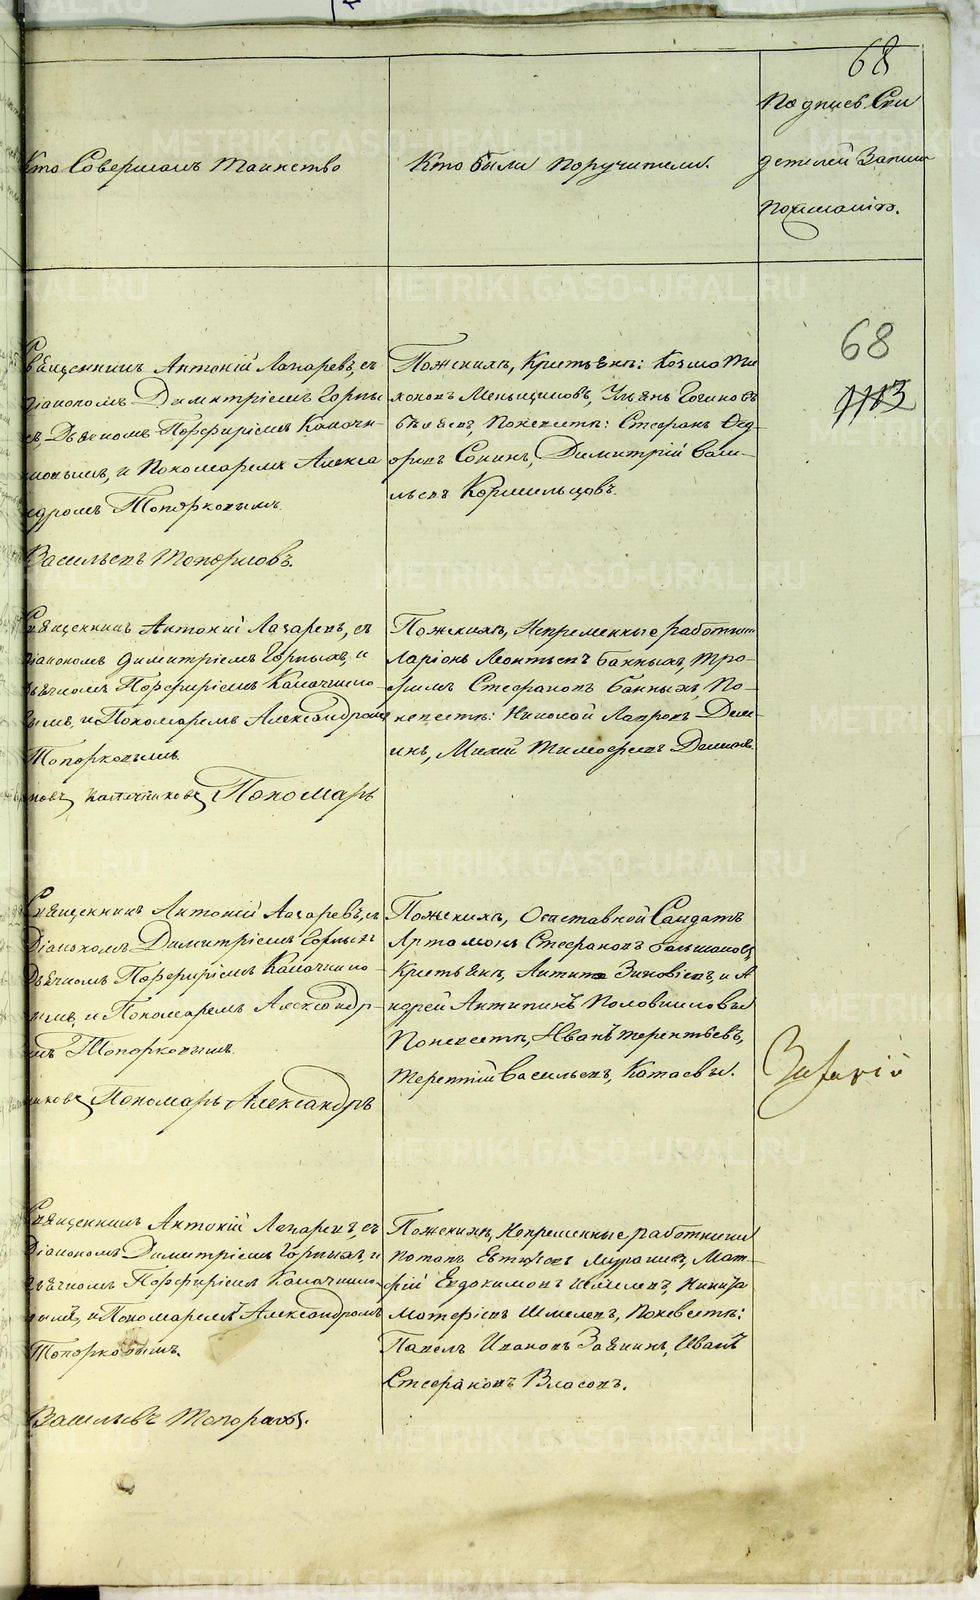 68
Подпись Сви
детелей Записи
по желанію.
Кто Совершалъ таинство
Кто были поручители.
68
1113
Священникъ Антоній Лазаревъ, съ
Діакономъ Димитріемъ Горны
съ, Дьячкомъ Порфиріемъ Калачи
никовымъ, и Пономаремъ Алекса
ндромъ Топорковымъ.
Васильевъ Топорковъ.
По женихѣ, Крестьяне: Козма Ти
хоновъ Меньщиковъ, Ульянъ
Бѣляевъ, По невѣстѣ: Стефанъ Фед
оровъ Сонинъ, Димитрій Васи-
льевъ Кормильцовъ.
Священникъ Антоній Лазаревъ, съ
Діакономъ Димитріемъ Горныхъ, и
Дьячкомъ Порфиріемъ Калачнико-
вымъ, и Пономаремъ Александромъ
Топорковымъ.
новъ, Калачниковъ, Пономарь
По женихѣ, Непременные работники
Ларіонъ Леонтьевъ Банныхъ, Тро-
фимъ Стефановъ Банныхъ, По-
невѣстѣ: Николай Лавровъ Дем-
инъ, Михей Тимофеевъ Деминъ.
Священникъ Антоній Лазаревъ, съ
Діакономъ Димитріемъ Горныхъ
Дьячкомъ Порфиріемъ Калачнико-
вымъ, и Пономаремъ Александр-
мъ Топорковымъ.
никовъ, Пономарь Александръ
По женихѣ, Отставной Салдатъ
Артамонъ Стефановъ Большаковъ,
Крестьяне, Антипа Зиновіевъ, и А
ндрей Антипинъ Половниковы
По невестѣ, Иванъ терентьевъ,
Терентій Васильевъ, Котаевы.
Священникъ Антоній Лазаревъ, съ
Діакономъ Димитріемъ Горныхъ, и
Дьячкомъ Порфиріемъ Калачнико-
вымъ, и Пономаремъ Александромъ
Топорковымъ.
Васильевъ Топорковъ.
По женихѣ, Непременные работники
Потапъ Евтиховъ Мат-
фій Евдокимовъ Шмелевъ, Никита
Матфіевъ Шмелевъ, По невестѣ:
Павелъ Ивановъ Заякинъ, Иванъ
Стефановъ Власовъ.